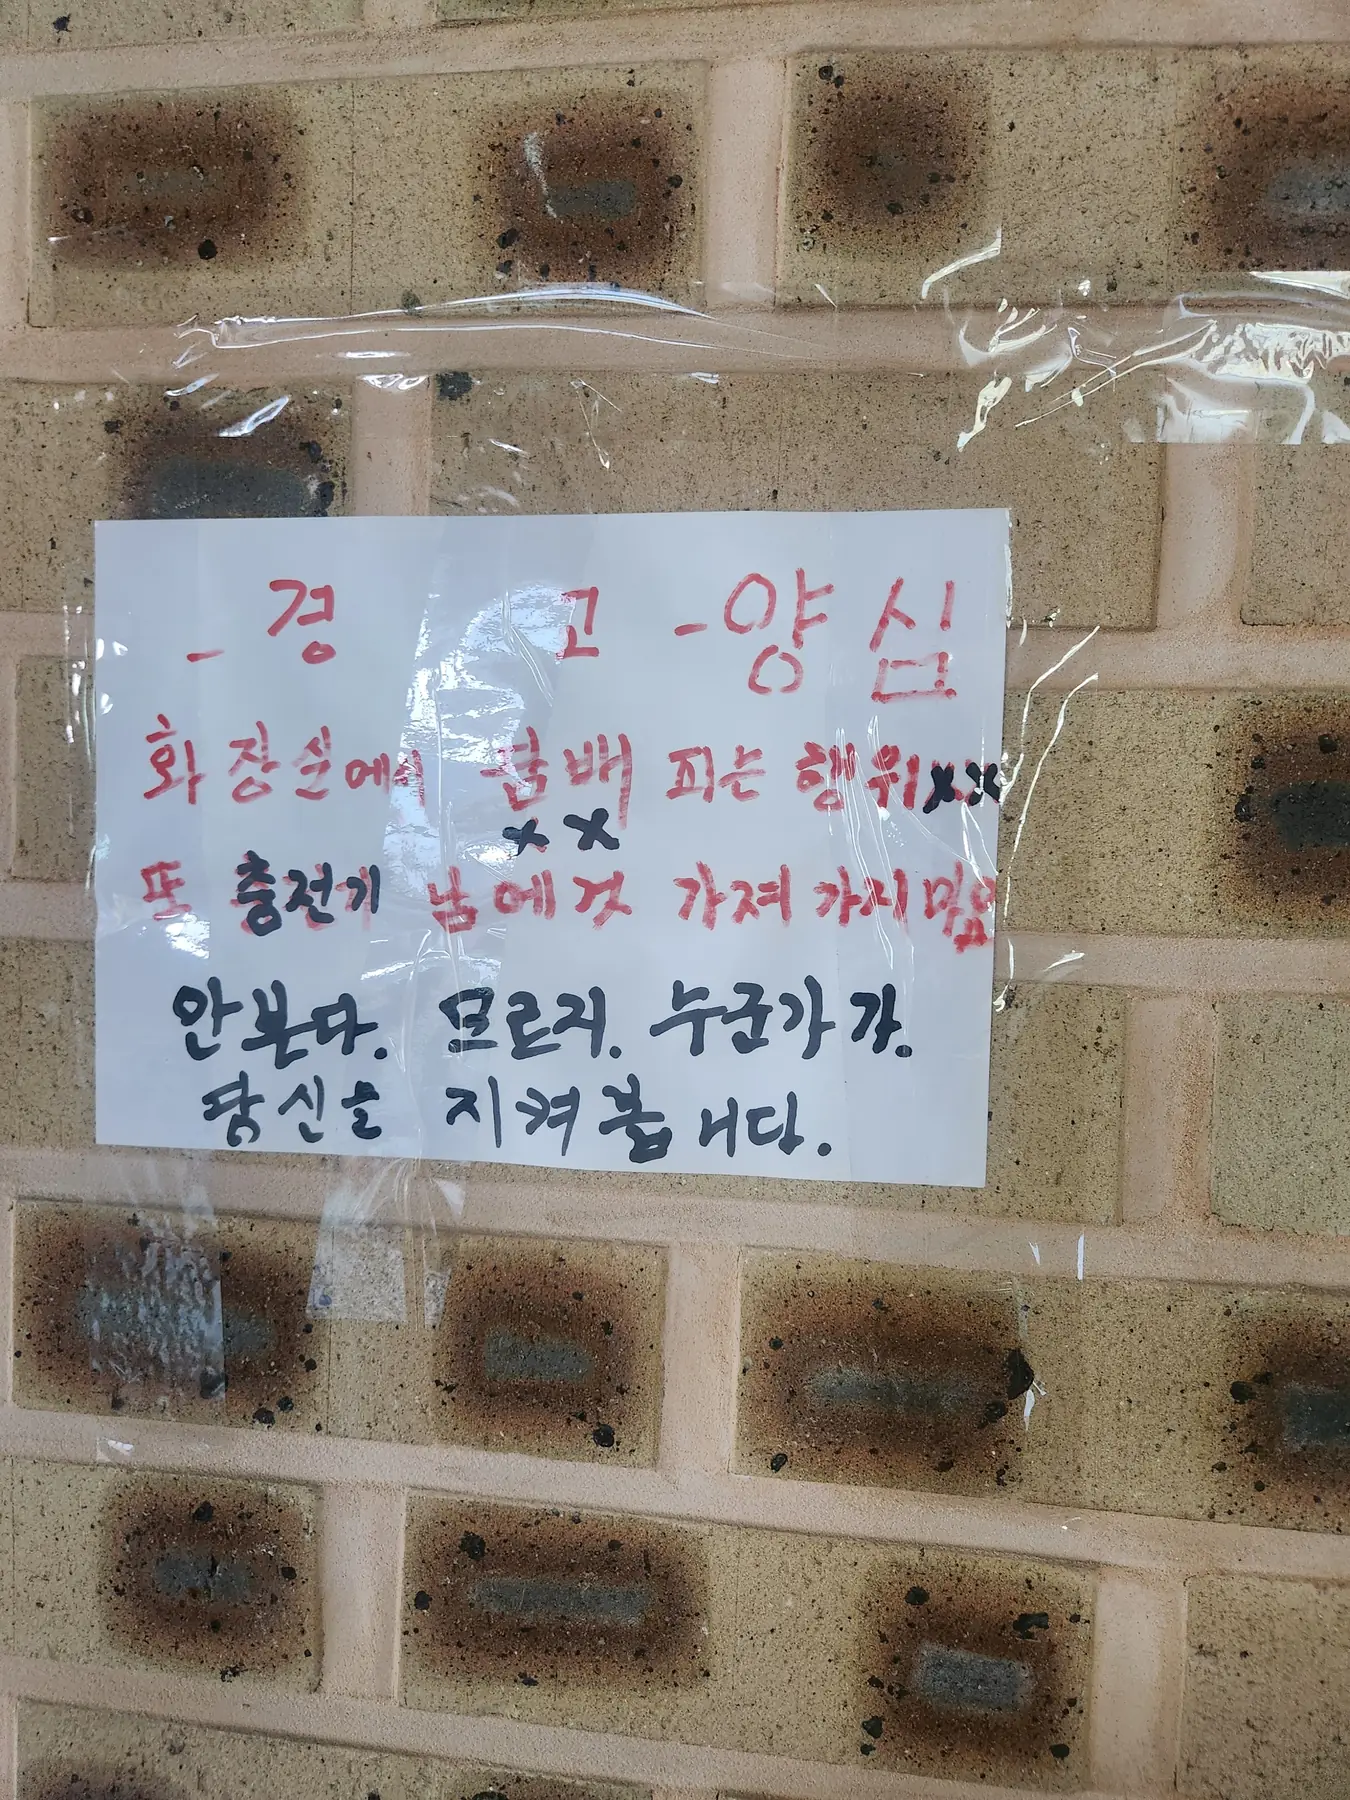 - 경 고 - 양심
화장실에서 담배 피는 행위xx
x x
또 충전기 남에것 가져가지마요
안본다. 모르지. 누군가가.
당신을 지켜봅니다.